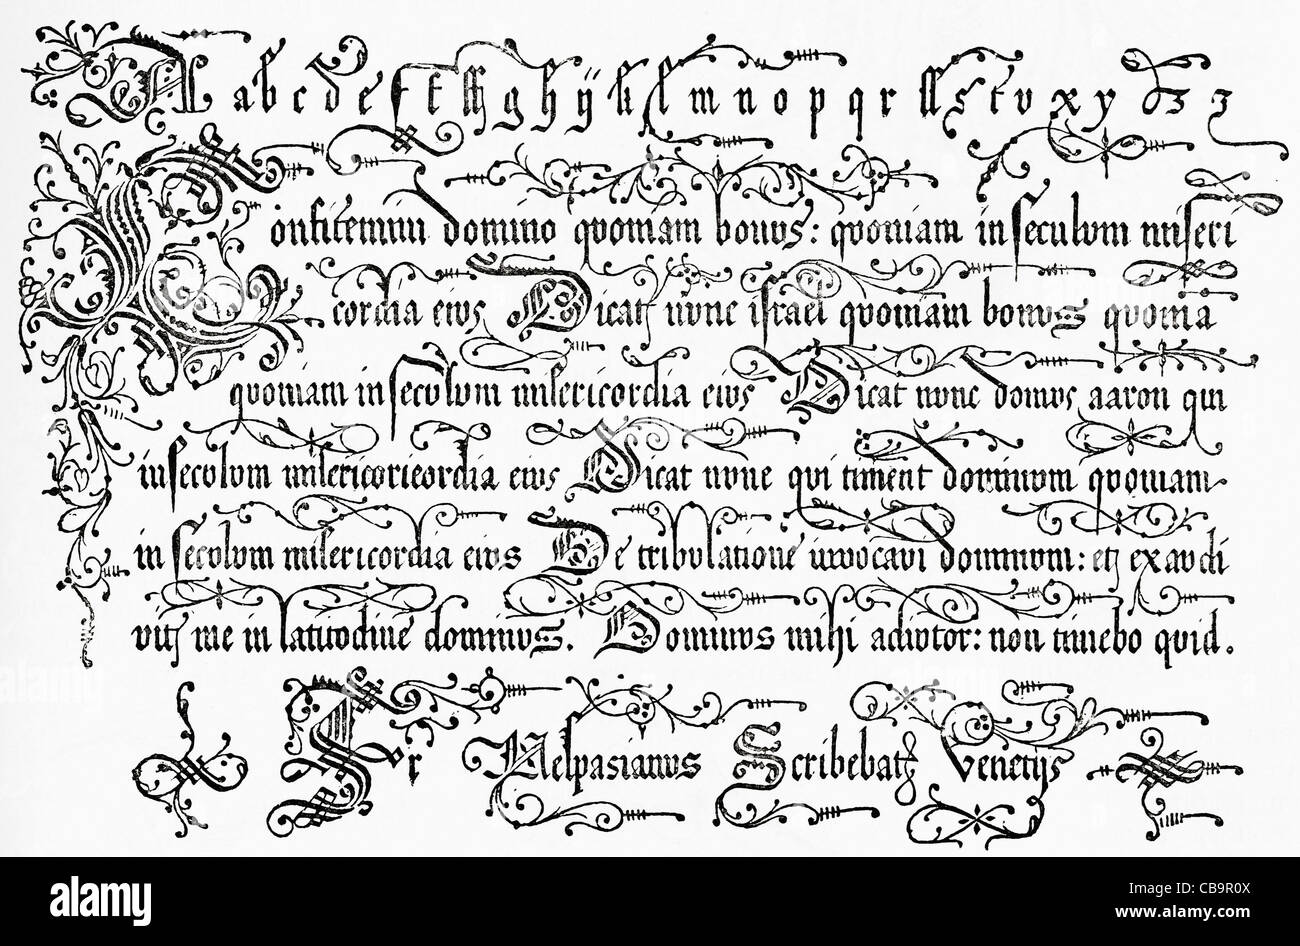 A a b c d e f t ff g h ij k l m n o p q r ſſ s t v x y z 3 3
Confitemini domino quoniam bonus: quoniam in seculum miseri
cordia eius Dicat nunc israel quoniam bonus quoniā
quoniam in seculum misericordia eius Dicat nunc domus aaron qui
in seculum misericoricordia eius Dicat nunc qui timent dominum quoniam
in seculum misericordia eius De tribulatione invocavi dominum: et exaudi
vit me in latitudine dominus. Dominus mihi adiutor: non timebo quid.
Vespasianus Scribebat Venetijs
alamy
Image ID: CB9R0X
www.alamy.com